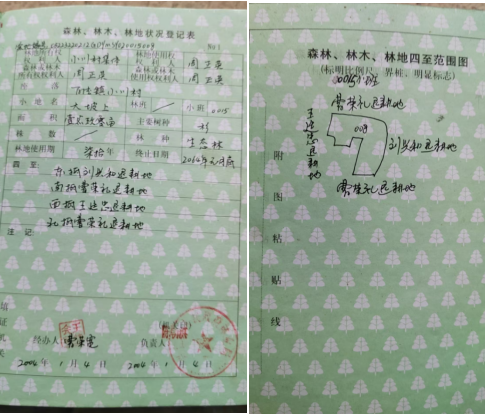 森林、林木、林地状况登记表
NO 1
林地所有权
权利人
小川村集体
林地使用权
权利人
周正英
森林或林木
所有权权利人
周正英
森林或林木
使用权权利人
周正英
坐落
小川村
小地名
大坡上
林班
小班
0015
面积
主要树种
杉
株数
林种
生态林
林地使用期
柒拾年
终止日期
四至:
东抵刘兴和退耕地
南抵曹荣礼退耕地
西抵王达忠退耕地
北抵曹荣礼退耕地
注记:
填
证
机
关
经办人
负责人
2004年1月4日
2004年1月4日
森林、林木、林地四至范围图
(标明比例尺、界桩、明显标志)
0015小班
曹荣礼退耕地
王达忠退耕地
009
刘兴和退耕地
曹荣礼退耕地
附
图
粘
贴
线